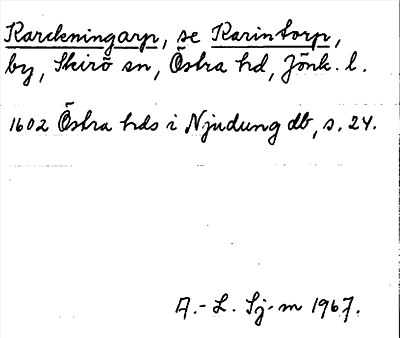 Karckningarp, se Karintorp,
by, Skirö sn, Östra hd, Jönk. l.
1602 Östra hds i Njudung db, s. 24.
A.-L. Sj-m 1967.